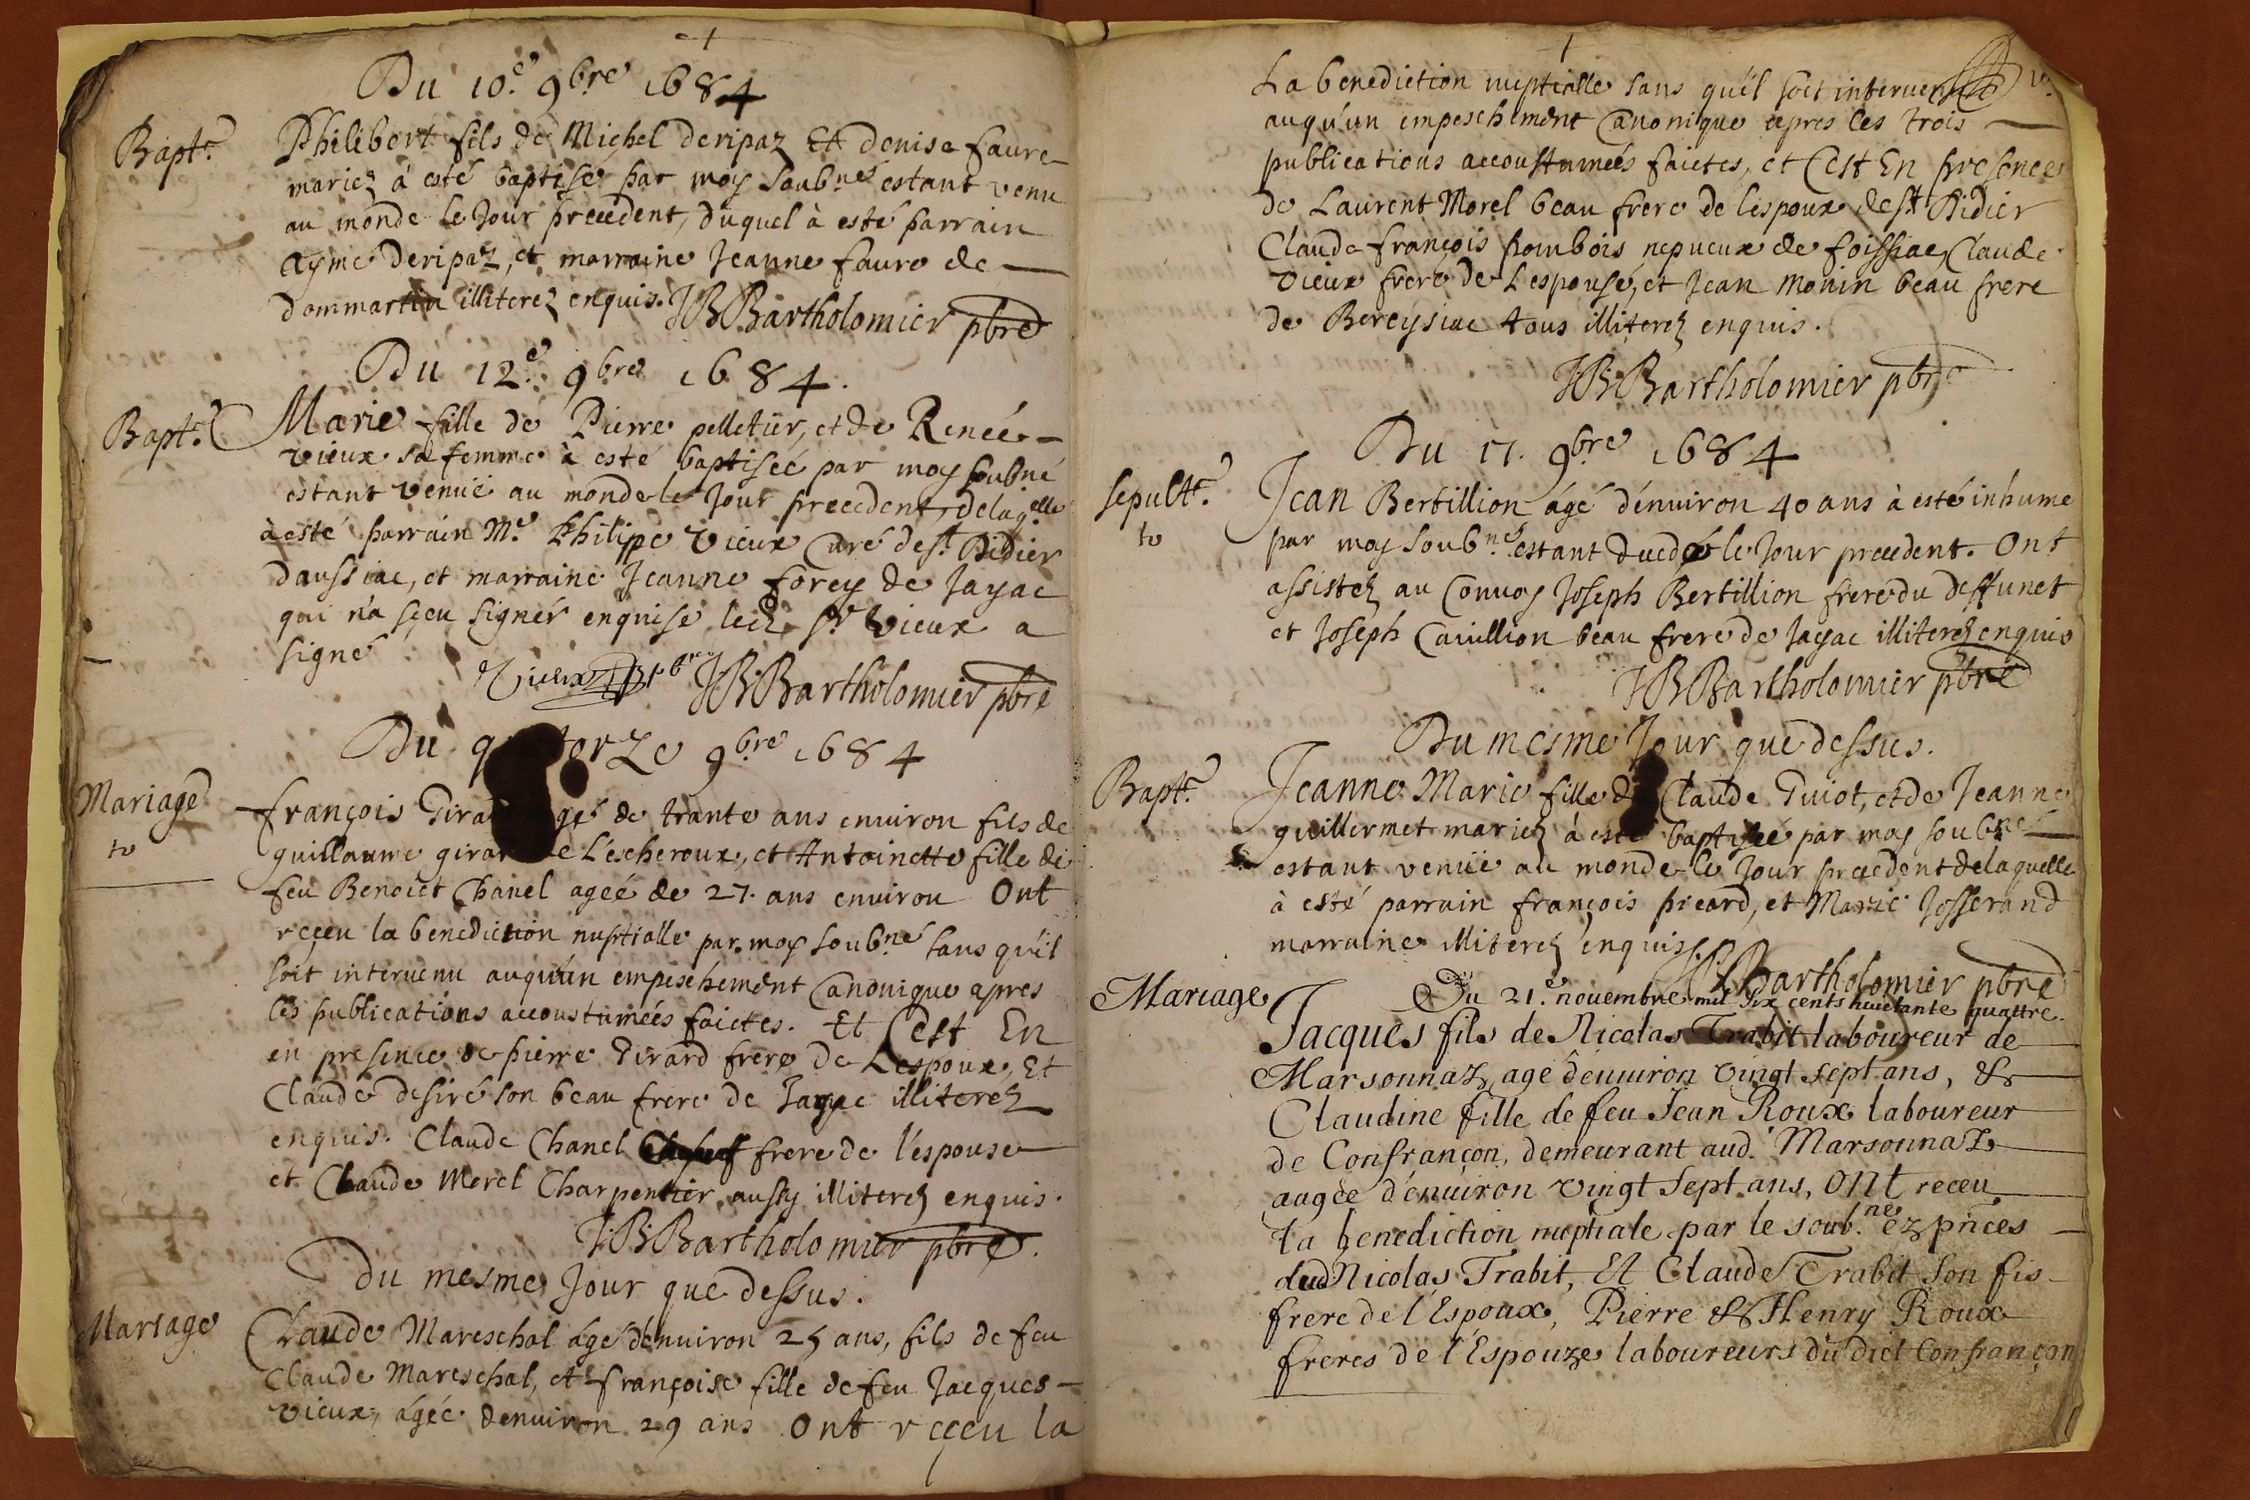 Du 10.e 9bre 1684
Bapt.e
Philibert fils de Michel deripaz Et denise faure
mariez à esté baptisé par moy soub.né estant venu
au monde le Jour precedent, duquel à esté parrain
Ayme deripaz, et marraine Jeanne faure de
dommartin illiterez enquis. JB Bartholomier pbre
Du 12.e 9bre 1684.
Bapt.e
Marie fille de Pierre pelletier, et de Renée
vieux sa femme à esté baptiseé par moy soubné
estant venuë au monde le Jour precedent, delaq.elle
à esté parrain M.e Philipe Vieux Curé de s.t Didier
daussiac, et marraine Jeanne forey de Jayac
qui n'a sçeu signér enquise led. s.r Vieux a
signé
Vieux JB Bartholomier pbre
Du q torze 9bre 1684
Mariage
to
françois Gira gé de trante ans enuiron fils de
guillaume girar de L'escheroux, et Antoinette fille de
feu Benoict Chanel ageé de 27. ans enuiron Ont
reçeu la benediction nuptialle par moy soub.né sans qu'il
soit interuenu auqu'un empeschement Canonique apres
les publications accoustuméés faictes. Et C'est En
en presence de pierre Girard frere de L'espoux, Et
Claude desiré son beau frere de Jayac illiterez
enquis. Claude Chanel frere de l'espouse
et Claude Morel Charpentier aussy illiterez enquis.
JB Bartholomier pbre.
Du mesme Jour que dessus.
Mariage
Claude Mareschal agé d'enuiron 25 ans, fils de feu
Claude Mareschal, et françoise fille de feu Jacques
vieux, agéé denuiron 29 ans Ont reçeu la
La benediction nuptialle sans qu'il soit interuenu
auqu'un empeschement Canonique apres les trois
publications accoustumeés faictes, et C'est En presence
de Laurent Morel beau frere de l'espoux de s.t Didier
Claude françois pombois nepueux de foissiac, Claude
Vieux frere de L'espouse, et Jean Monin beau frere
de Bereysiac tous illiterez enquis.
JB Bartholomier pbre
Du 17. 9bre 1684
sepult.e
to
Jean Bertillion agé d'enuiron 40 ans à esté inhumé
par moy soub.né estant le Jour precedent. Ont
assistez au Conuoy Joseph Bertillion frere du deffunct
et Joseph Cauillion beau frere de Jayac illiterez enquis
JB Bartholomier pbre
Du mesme Jour que dessus.
Bapt.e
Jeanne Marie fille de Claude Guiot, et de Jeanne
guillermet mariez à esté baptiseé par moy soubné
estant venuë au monde le Jour precedent delaquelle
à esté parrain françois picard, et Marie Josserand
marraine illiterez enquis. JB Bartholomier pbre
Mariage
Du 21.e nouembre mil six cents huictante quattre.
Jacques fils de Nicolas Trabit laboureur de
Marsonnaz, agé d'enuiron vingt sept ans, &
Claudine fille de feu Jean Roux laboureur
de Confrançon, demeurant aud. Marsonnaz
aagée d'enuiron vingt sept ans, ont receu
la benediction nuptiale par le soub.né ez pnces
dud Nicolas Trabit, Et Claude Trabit son fis
frere de l'Espoux, Pierre & Henry Roux
freres de l'Espouze laboureurs du dict Confrançon